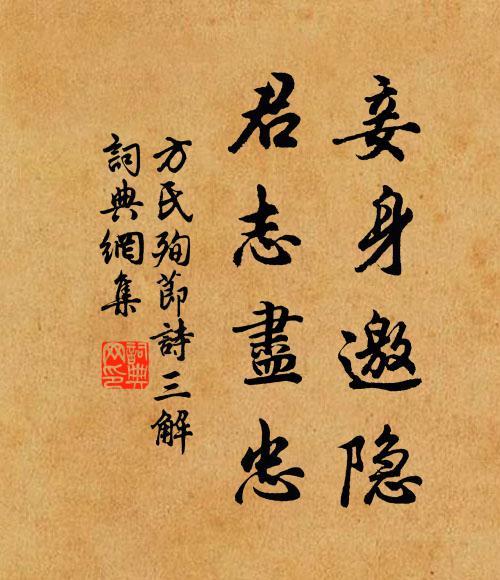 妾身邀隐
君志盡忠
方氏殉節詩三解
詞典網集
詞典網印